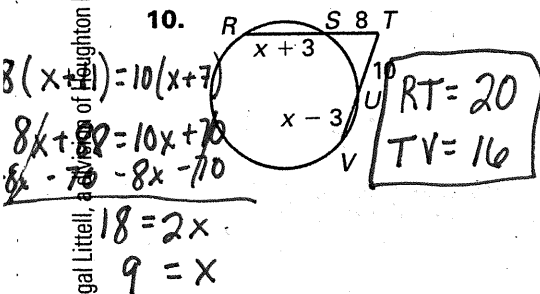 10.
R S 8 T
x + 3
10
U
x − 3
V
8(x+11)=10(x+7)
8x+88=10x+70
-8x -70 -8x -70
18=2x
9 = x
RT=20
TV=16
gal Littell, a division of Houghton